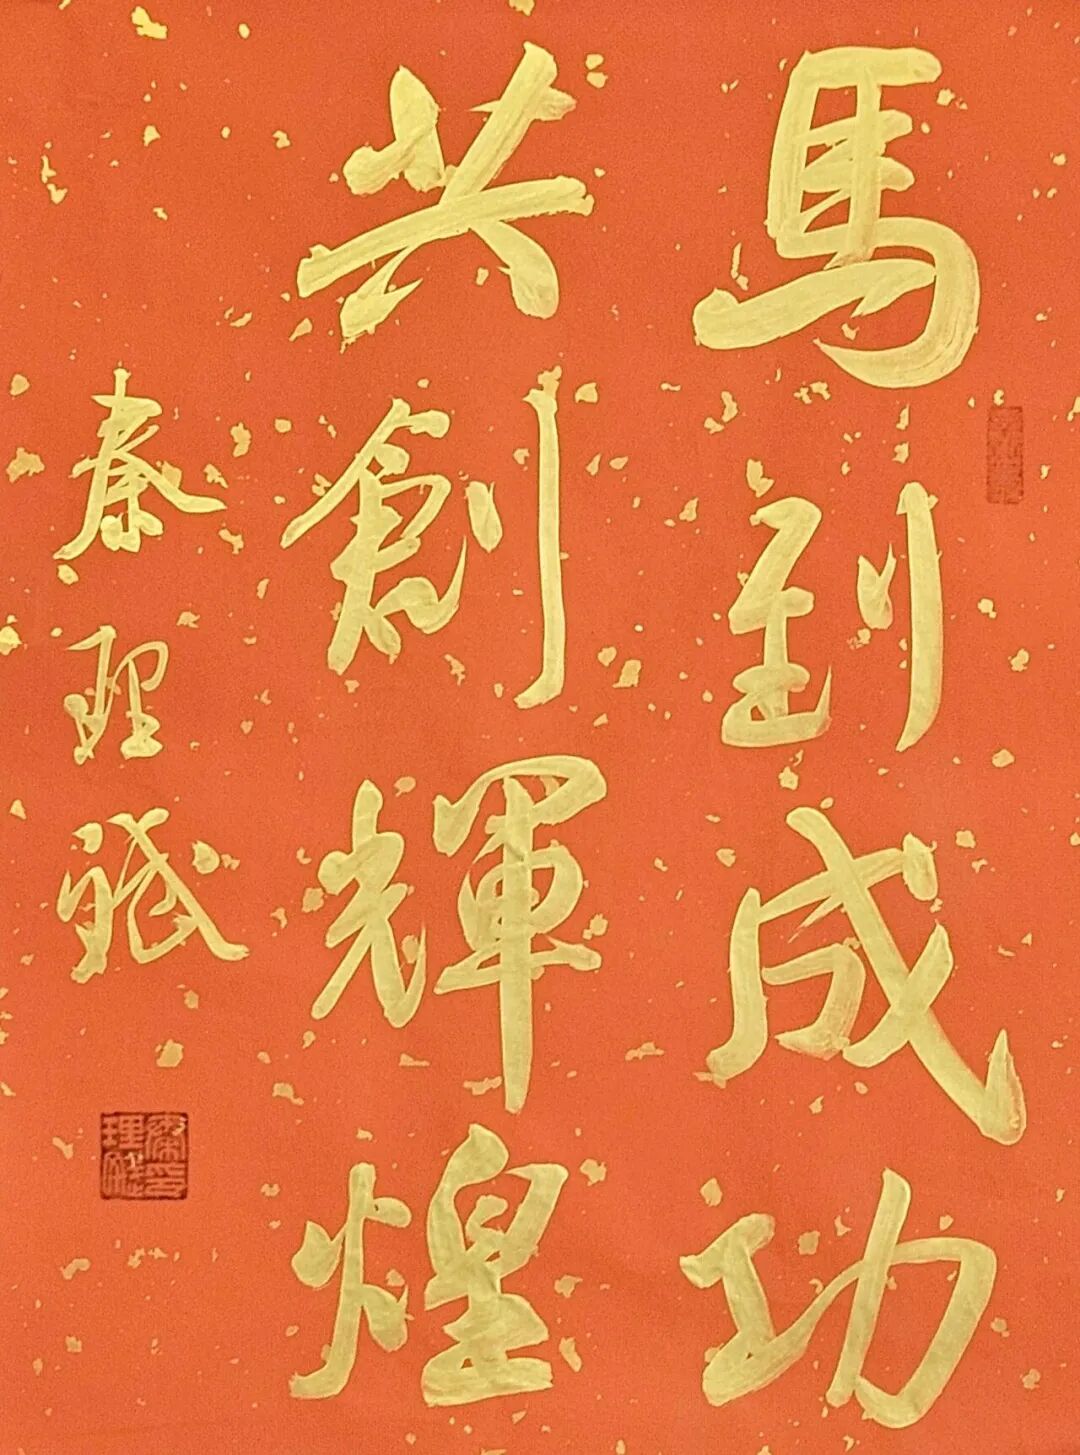 馬到成功
共創輝煌
秦理
秦印
理